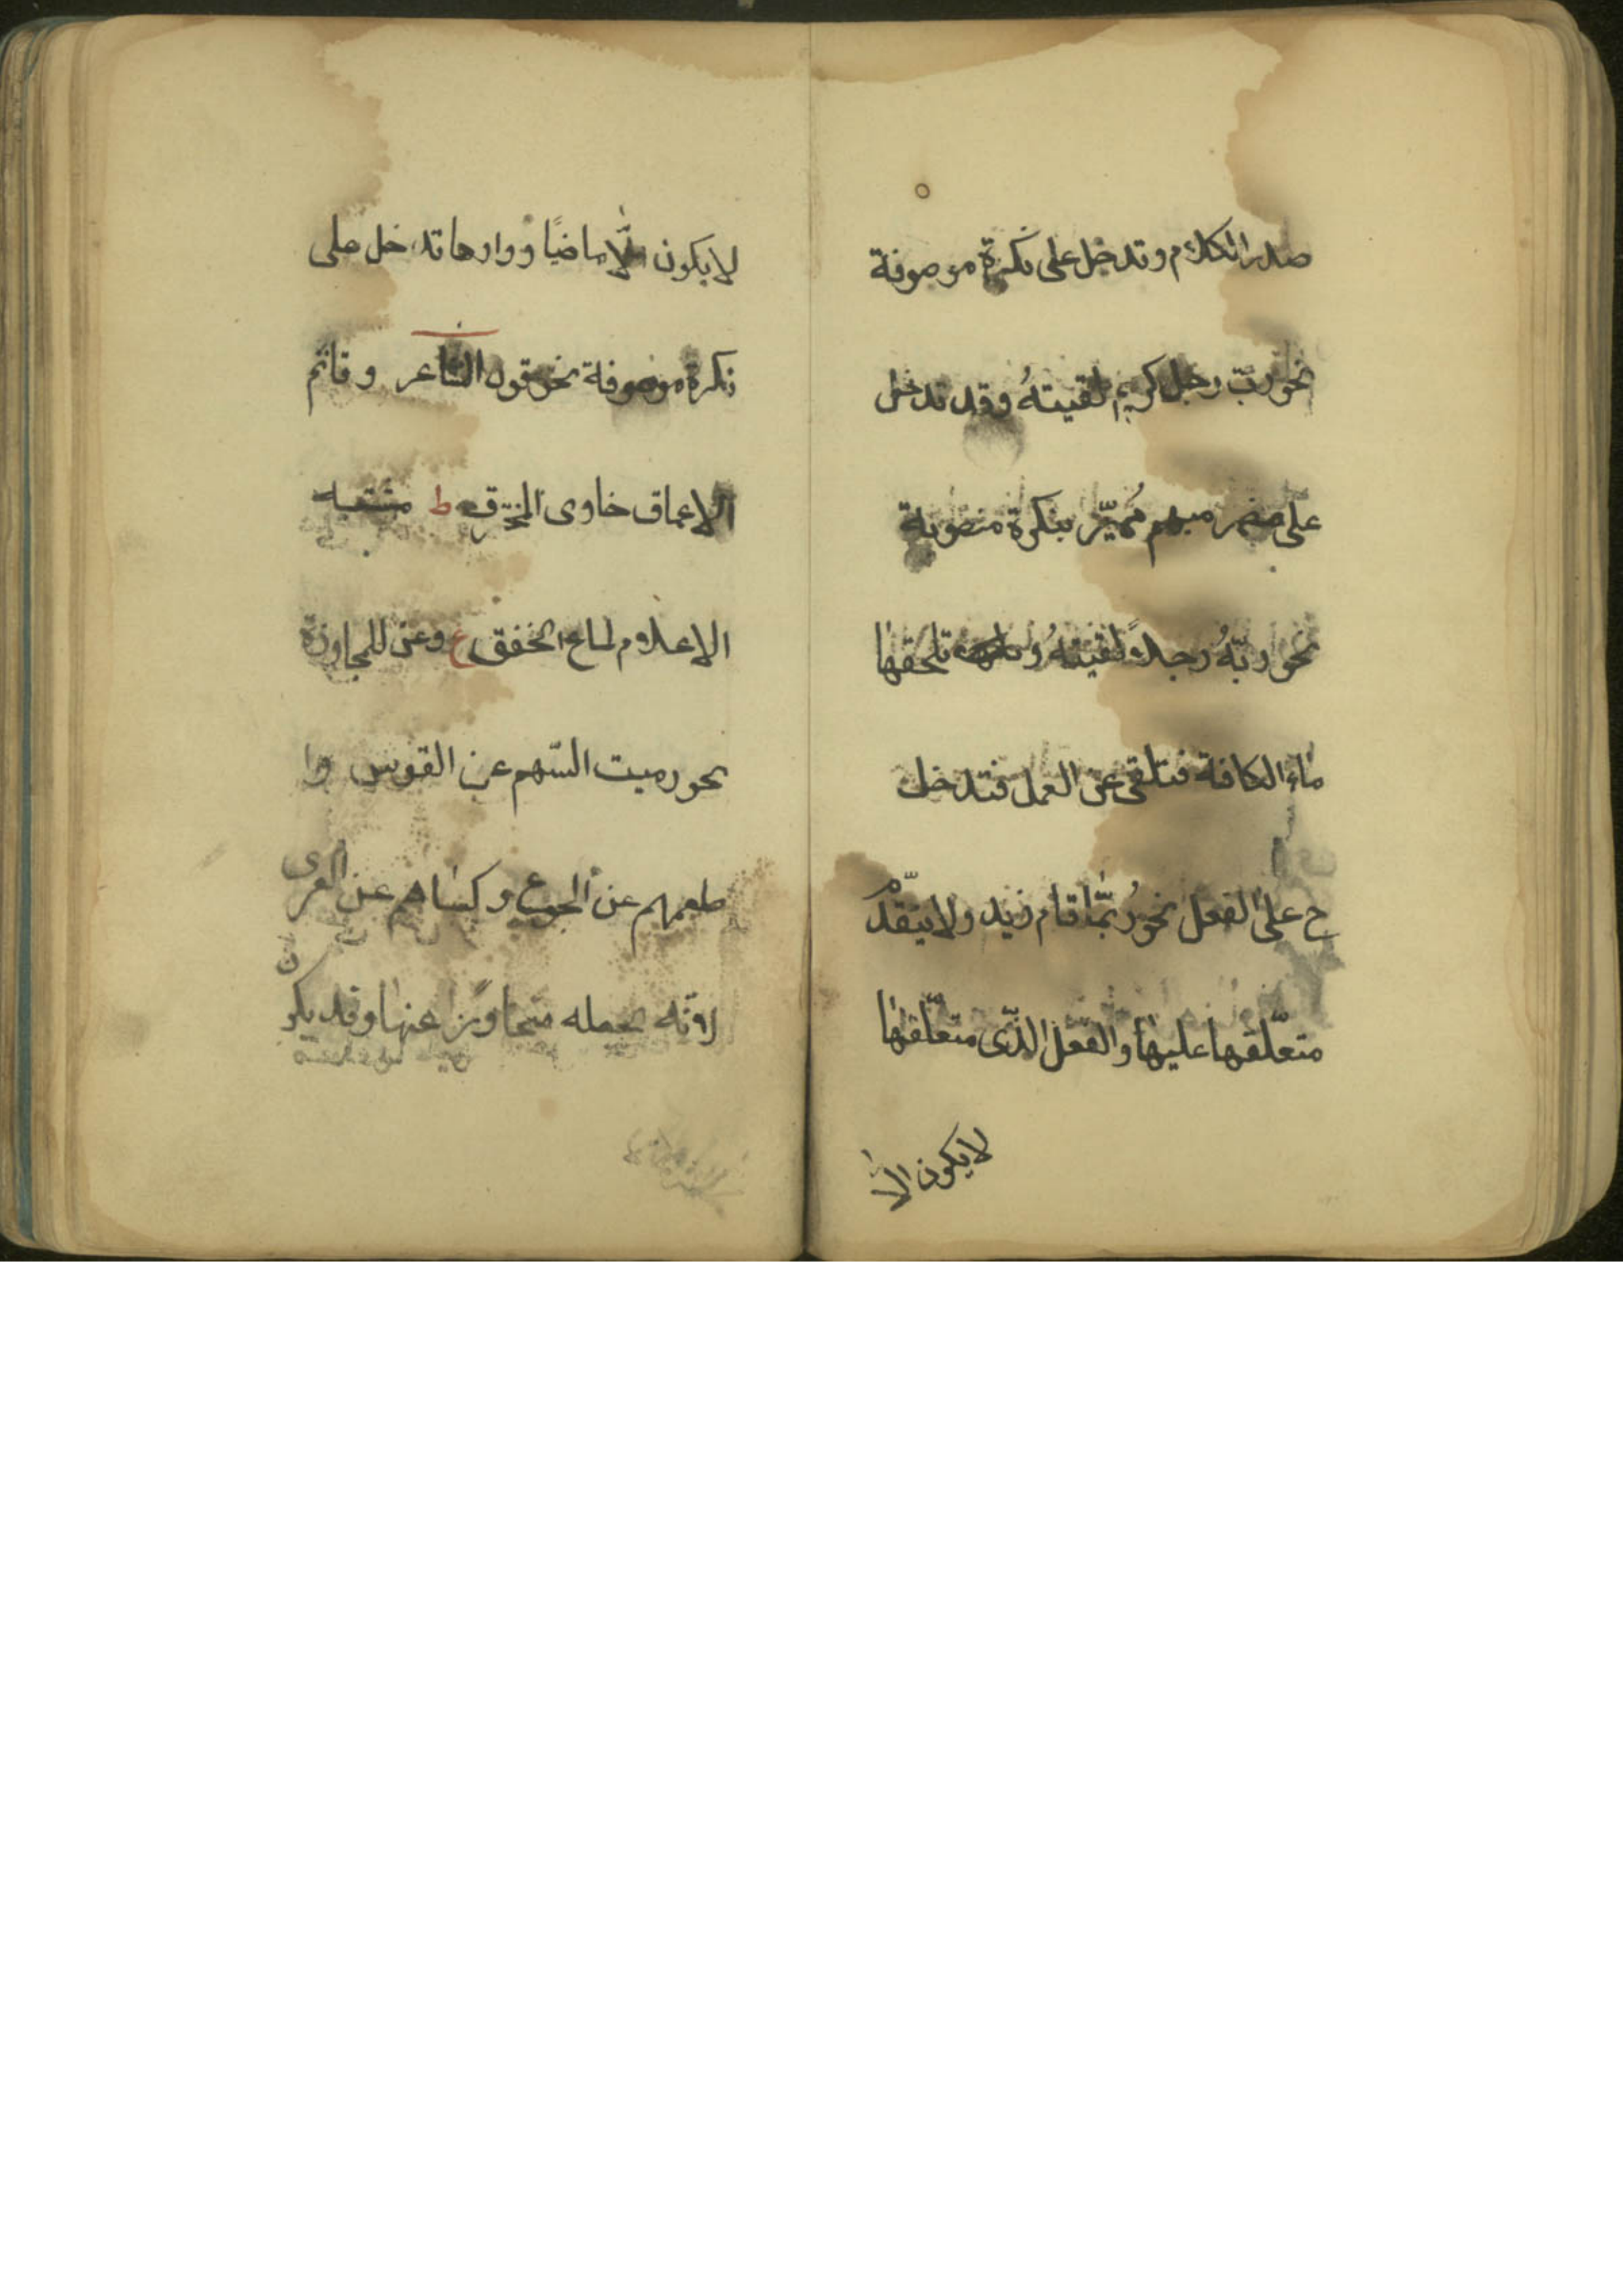 صدر الكلام وتدخل على نكرة موصوفة
نحو ربّ رجل كريم لقيتهُ وقد تدخل
على مضمر مبهم مُميّز بنكرة منصوبة
نحو ربّهُ رجلاً لقيتهُ و تلحقها
ماء الكافة فتلقى عن العمل فتدخل
ح على الفعل نحو رُبّما قام زيد ولا يتقدّم
متعلّقها عليها والفعل الذّى متعلّقها
لا يكون الا
لا يكون الّا ماضيًا وواوها تدخل على
نكرة موصوفة نحو قول الشاعر وقاتم
الاعماق خاوى المخترق ط مشتبه
الاعلام لماع الخفق ع وعن للمجاوزة
نحو رميت السّهم عن القوس وا
طعمهم عن الجوع وكساهم عن العرى
لانّه يجعله متجاوزًا عنها وقد يكون